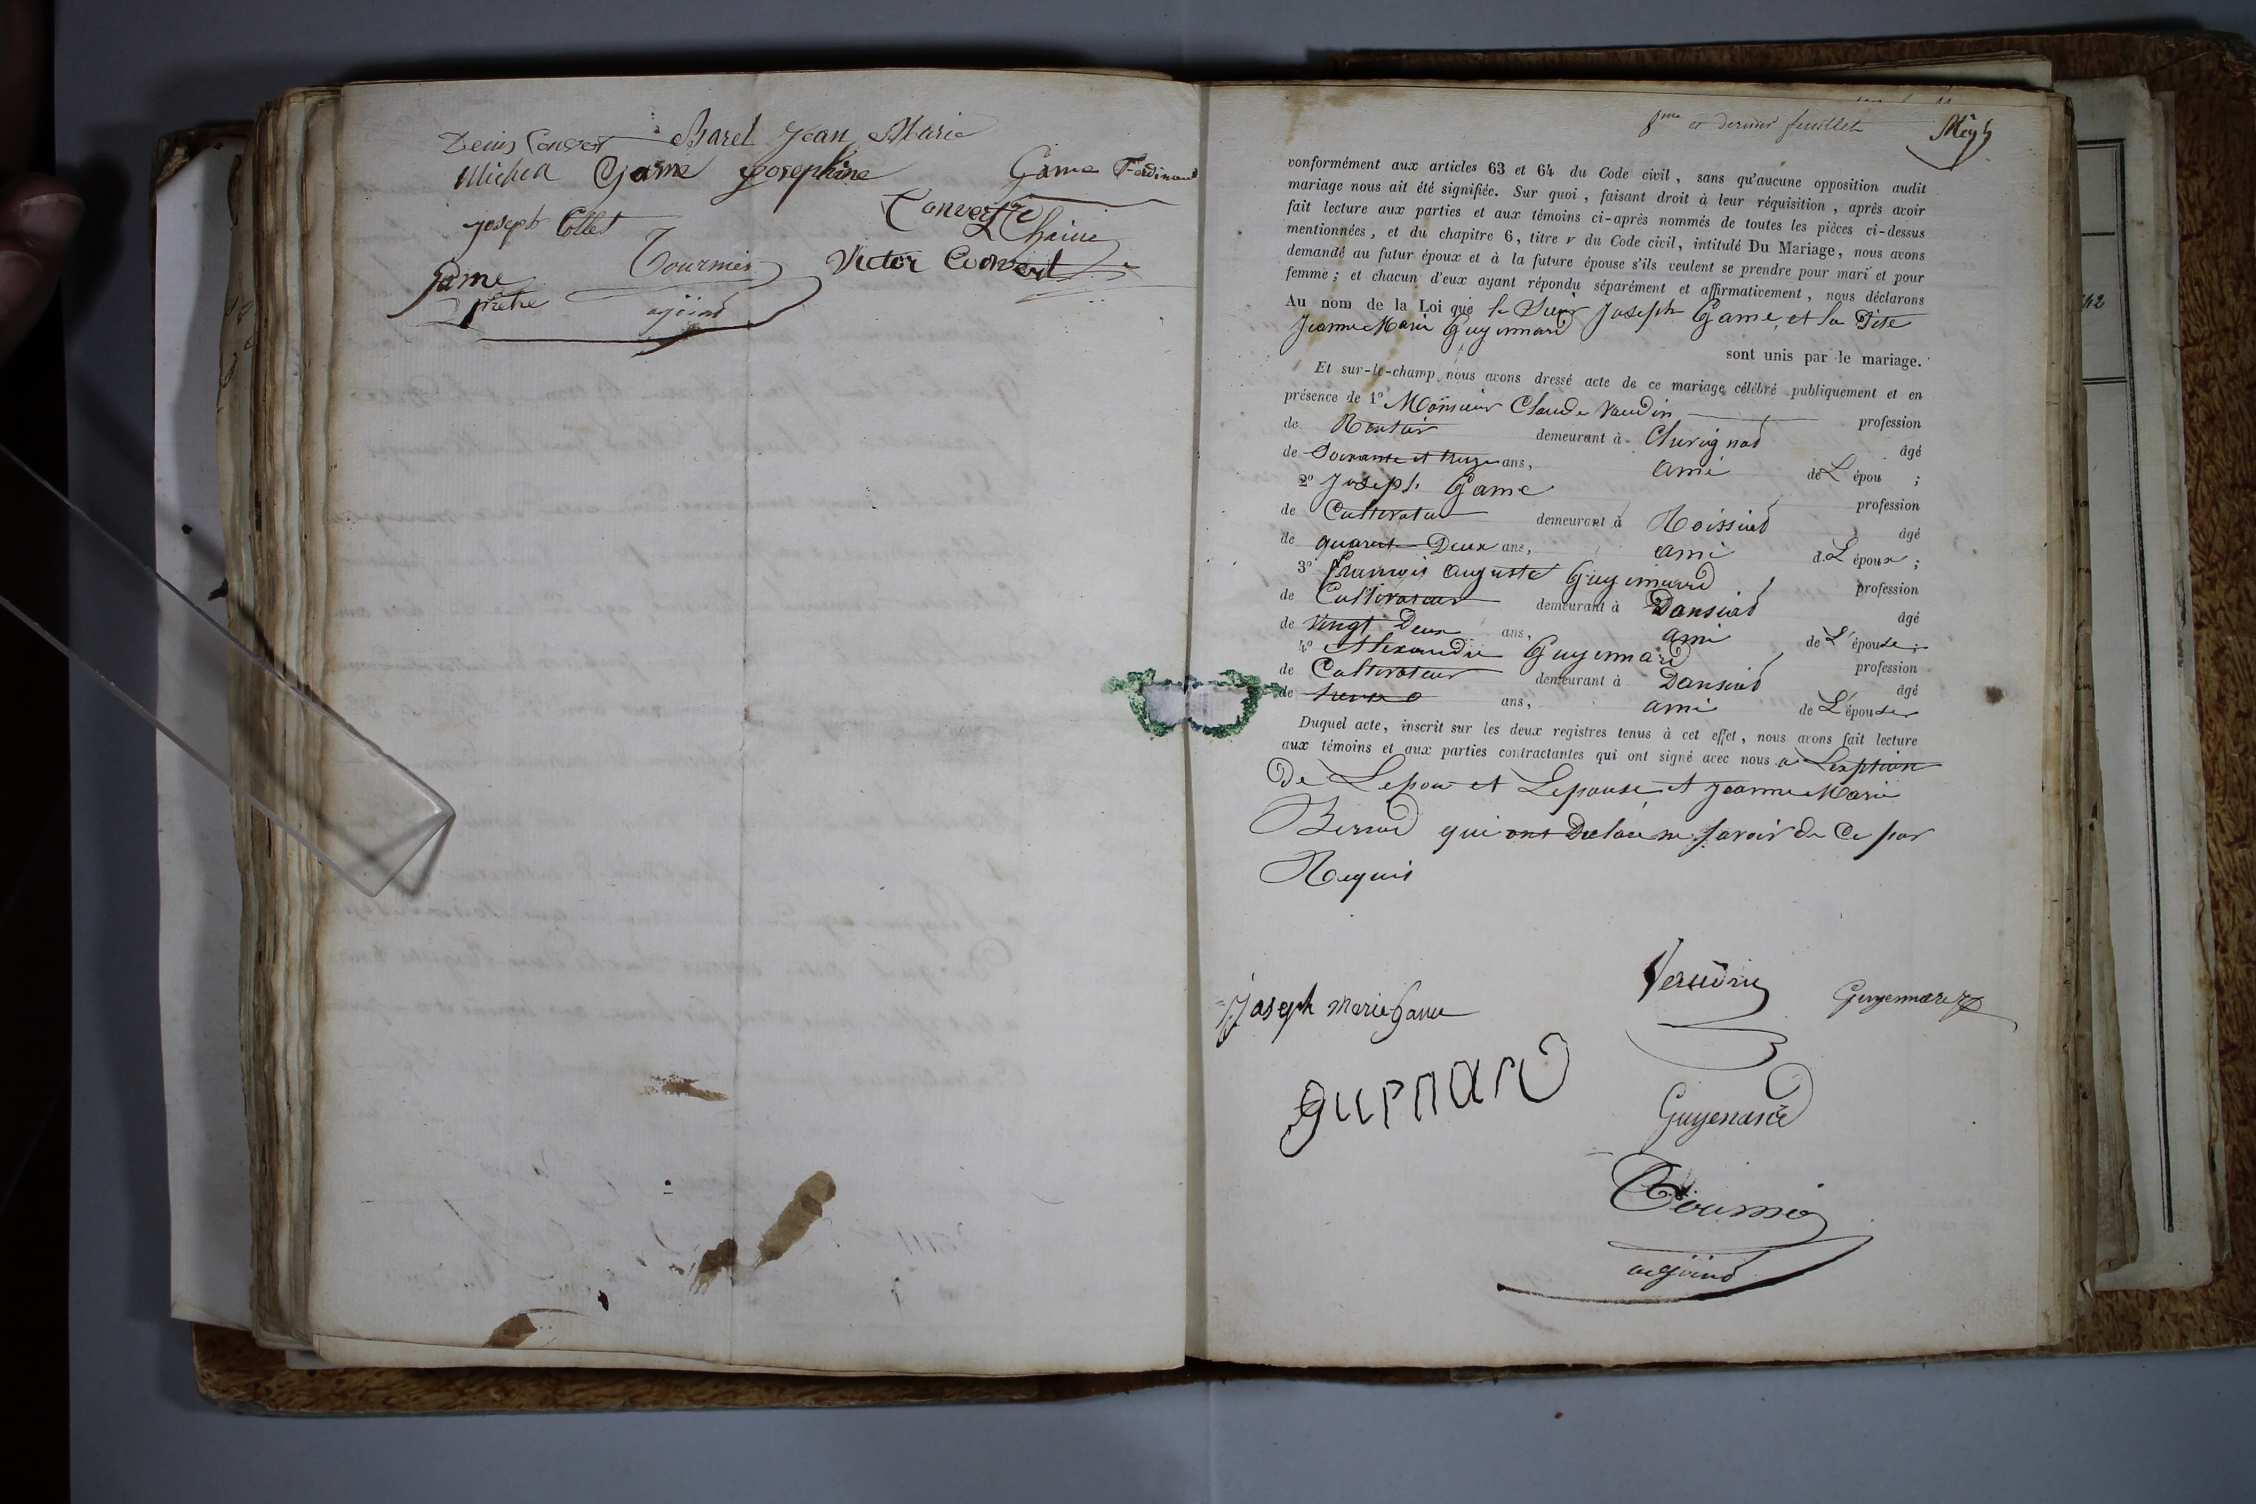 Denis Convert Marel Jean Marie
Michel Game Josephine Game Ferdinand
Joseph Collet Convert
Chaine
Tournier Victor Convert
Game
prêtre adjoint
8me et dernier feuillet
conformément aux articles 63 et 64 du Code civil, sans qu'aucune opposition audit
mariage nous ait été signifiée. Sur quoi, faisant droit à leur réquisition, après avoir
fait lecture aux parties et aux témoins ci-après nommés de toutes les pièces ci-dessus
mentionnées, et du chapitre 6, titre v du Code civil, intitulé Du Mariage, nous avons
demandé au futur époux et à la future épouse s'ils veulent se prendre pour mari et pour
femme ; et chacun d'eux ayant répondu séparément et affirmativement, nous déclarons
Au nom de la Loi que le Sieur Joseph Game, et la Dite
Jeanne Marie Guyennard
sont unis par le mariage.
Et sur-le-champ nous avons dressé acte de ce mariage célébré publiquement et en
présence de 1° Monsieur Claude Vaudin profession
de Rentier demeurant à Chevignat âgé
de Soixante et treize ans, ami de L épou ;
2° Joseph Game profession
de Cultivateur demeurant à Roissiat âgé
de quarante Deux ans, ami d. L époux ;
3° francois auguste Guyennard profession
de Cultivateur demeurant à Dansiat âgé
de vingt Deux ans, ami de L'épouse ;
4° Alexandre Guyennard profession
de Cultivateur demeurant à Dansiat âgé
de trente ans, ami de L'épouse
Duquel acte, inscrit sur les deux registres tenus à cet effet, nous avons fait lecture
aux témoins et aux parties contractantes qui ont signé avec nous a Lexption
De Lepou et Lepouse, et Jeanne Marie
qui ont Declaré ne savoir de Ce par
Requis
Joseph marie Game Guyennard
guenard
Guyenard
Tournier
adjoint